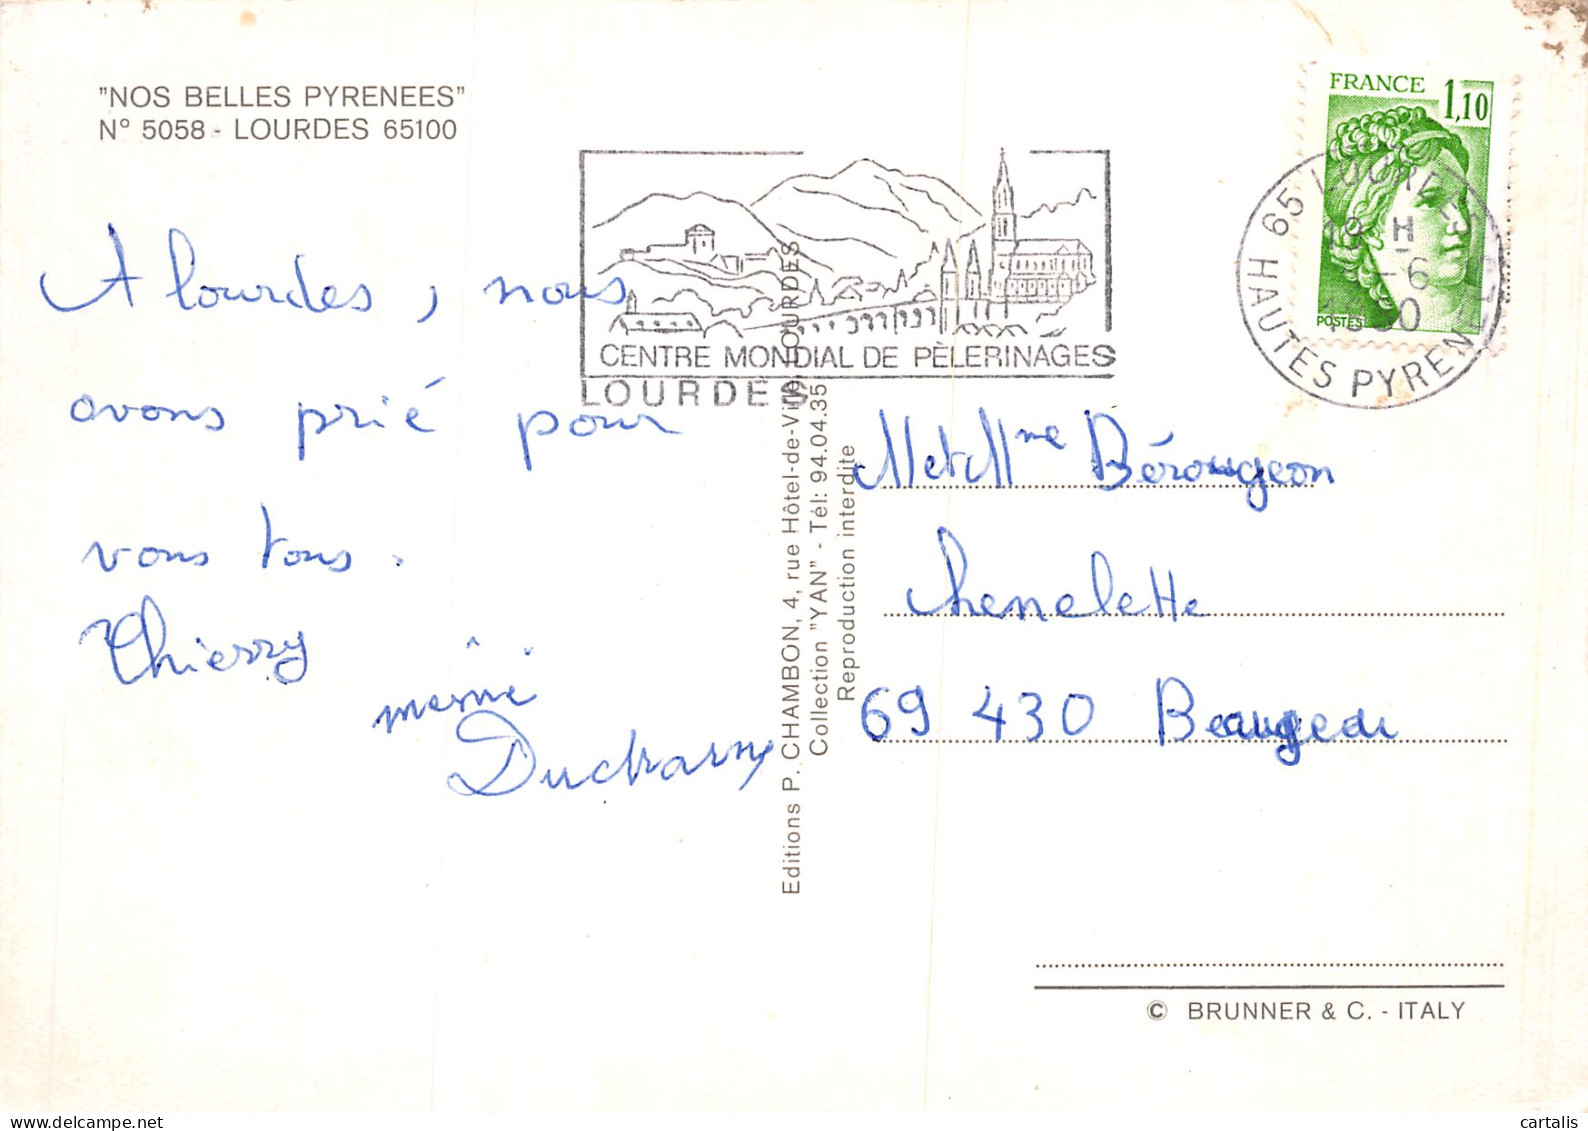 "NOS BELLES PYRENEES"
N° 5058 - LOURDES 65100
A lourdes, nous
avons prié pour
vous tous.
Thierry
Ducharne
CENTRE MONDIAL DE PÈLERINAGES
LOURDES
FRANCE 1,10
POSTES
65 LOURDES
18 H
-6
1980
HAUTES PYRENEES
Editions P. CHAMBON, 4, rue Hôtel-de-Ville LOURDES
Collection "YAN" - Tél: 94.04.35
Reproduction interdite
M et Mme Bérougeon
Chenelette
69 430 Beaujeu
© BRUNNER & C. - ITALY
cartalis